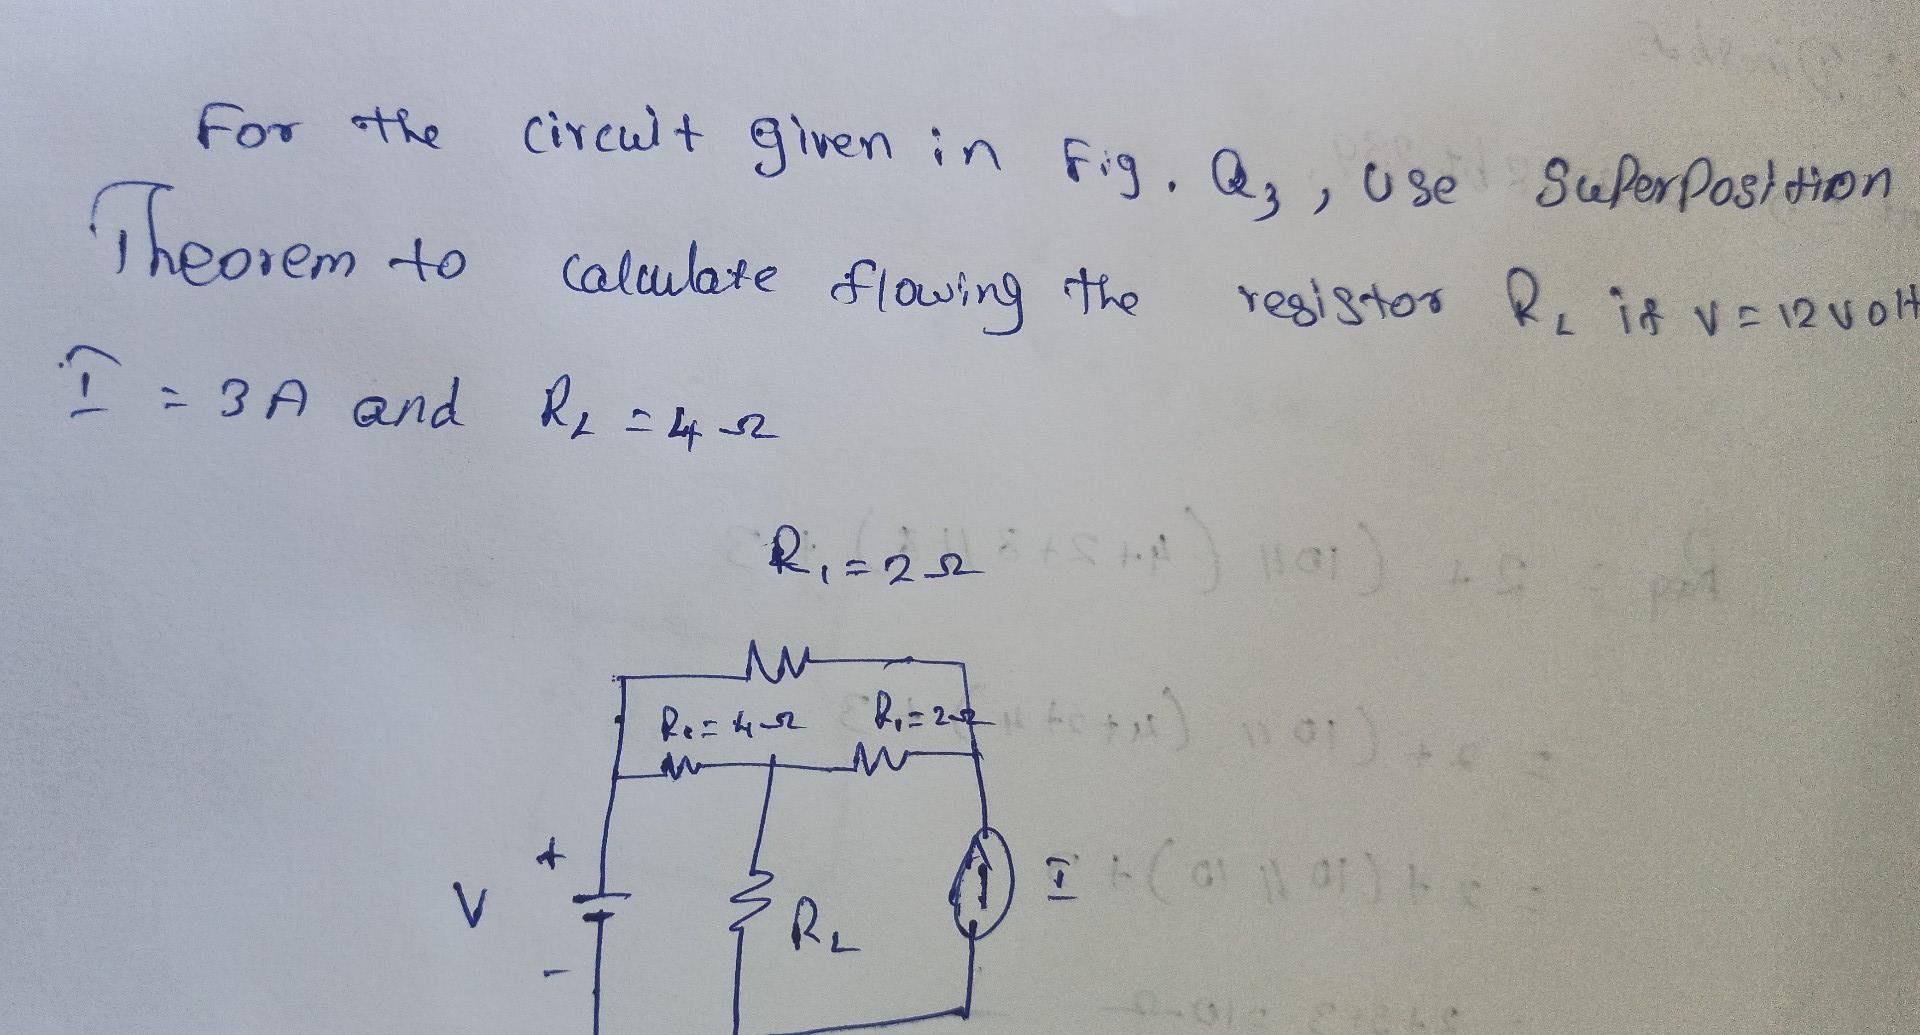 For the circuit given in Fig. Q3, Use Superposition
Theorem to calculate flowing the resistor RL if V = 12 volt
I = 3A and RL = 4Ω
R1 = 2Ω
R2 = 4Ω R1 = 2Ω
+
V
RL
I
-